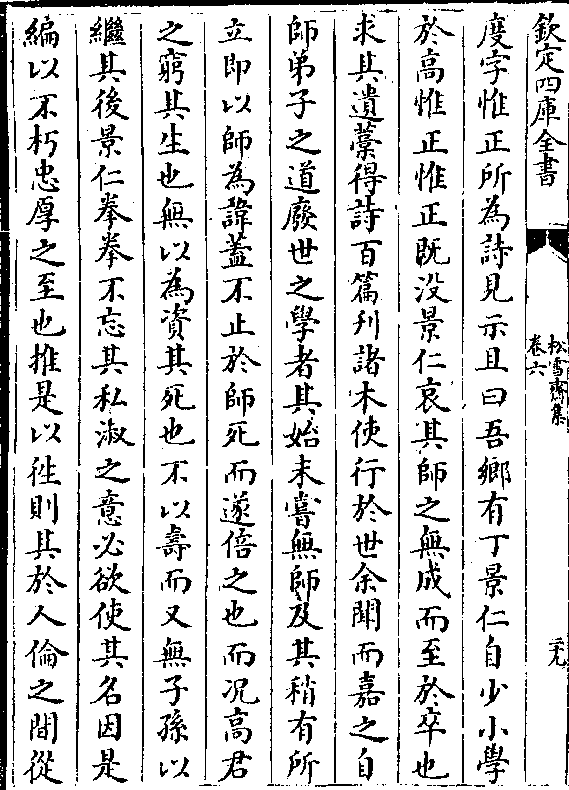 欽定四庫全書
松雪齋集
卷六
二九
度字惟正所為詩見示且曰吾鄉有丁景仁自少小學
於高惟正惟正既没景仁哀其師之無成而至於卒也
求其遺藁得詩百篇刋諸木使行於世余聞而嘉之自
師弟子之道廢世之學者其始未嘗無師及其稍有所
立即以師為諱蓋不止於師死而遂倍之也而况高君
之窮其生也無以為資其死也不以壽而又無子孫以
繼其後景仁拳拳不忘其私淑之意必欲使其名因是
編以不朽忠厚之至也推是以徃則其於人倫之間從